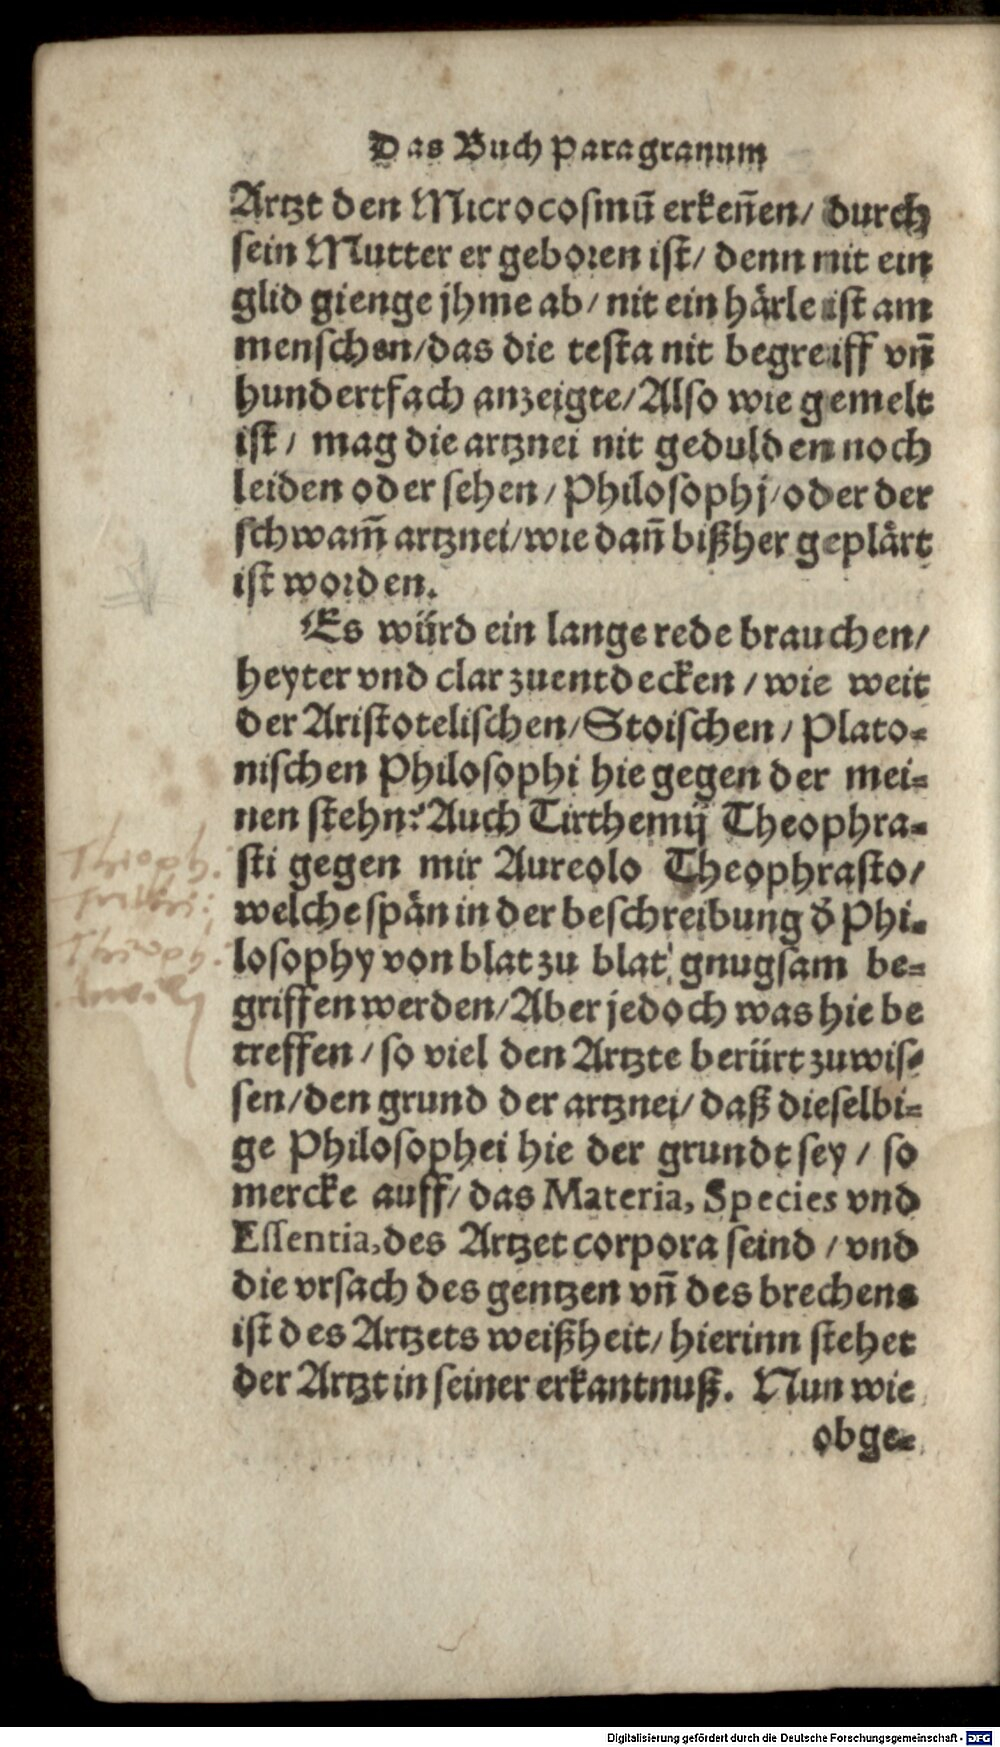 Das Buch Paragranum
Artzt den Microcosmū erkeñen/ durch
sein Mutter er geboren ist/ denn nit ein
glid gienge jhme ab/ nit ein härle ist am
menschen/das die testa nit begreiff vñ
hundertfach anzeigte/Also wie gemelt
ist/ mag die artznei nit gedulden noch
leiden oder sehen/Philosophj/oder der
schwam̄ artznei/wie dañ bißher geplärt
ist worden.
Es würd ein lange rede brauchen/
heyter vnd clar zuentdecken/wie weit
der Aristotelischen/Stoischen/Plato-
nischen Philosophi hie gegen der mei-
nen stehn? Auch Tirthemij Theophra-
sti gegen mir Aureolo Theophrasto/
welche spän in der beschreibung d̄ Phi-
losophy von blat zu blat gnugsam be-
griffen werden/Aber jedoch was hie be
treffen/so viel den Artzte berürt zuwis-
sen/den grund der artznei/daß dieselbi-
ge Philosophei hie der grundt sey/so
mercke auff/das Materia, Species vnd
Essentia, des Artzet corpora seind/vnd
die vrsach des gentzen vñ des brechens
ist des Artzets weißheit/hierinn stehet
der Artzt in seiner erkantnuß. Nun wie
obge-
Theoph.
Theoph.
Digitalisierung gefördert durch die Deutsche Forschungsgemeinschaft - DFG